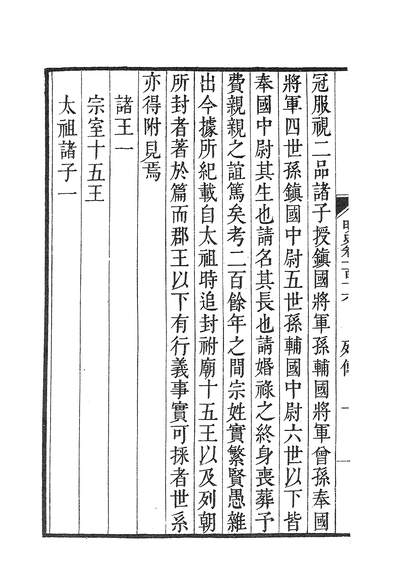 冠服視二品諸子授鎮國將軍孫輔國將軍曾孫奉國
將軍四世孫鎮國中尉五世孫輔國中尉六世以下皆
奉國中尉其生也請名其長也請婚祿之終身喪葬予
費親親之誼篤矣考二百餘年之間宗姓實繁賢愚雜
出今據所紀載自太祖時追封祔廟十五王以及列朝
所封者著於篇而郡王以下有行義事實可採者世系
亦得附見焉
諸王一
宗室十五王
太祖諸子一